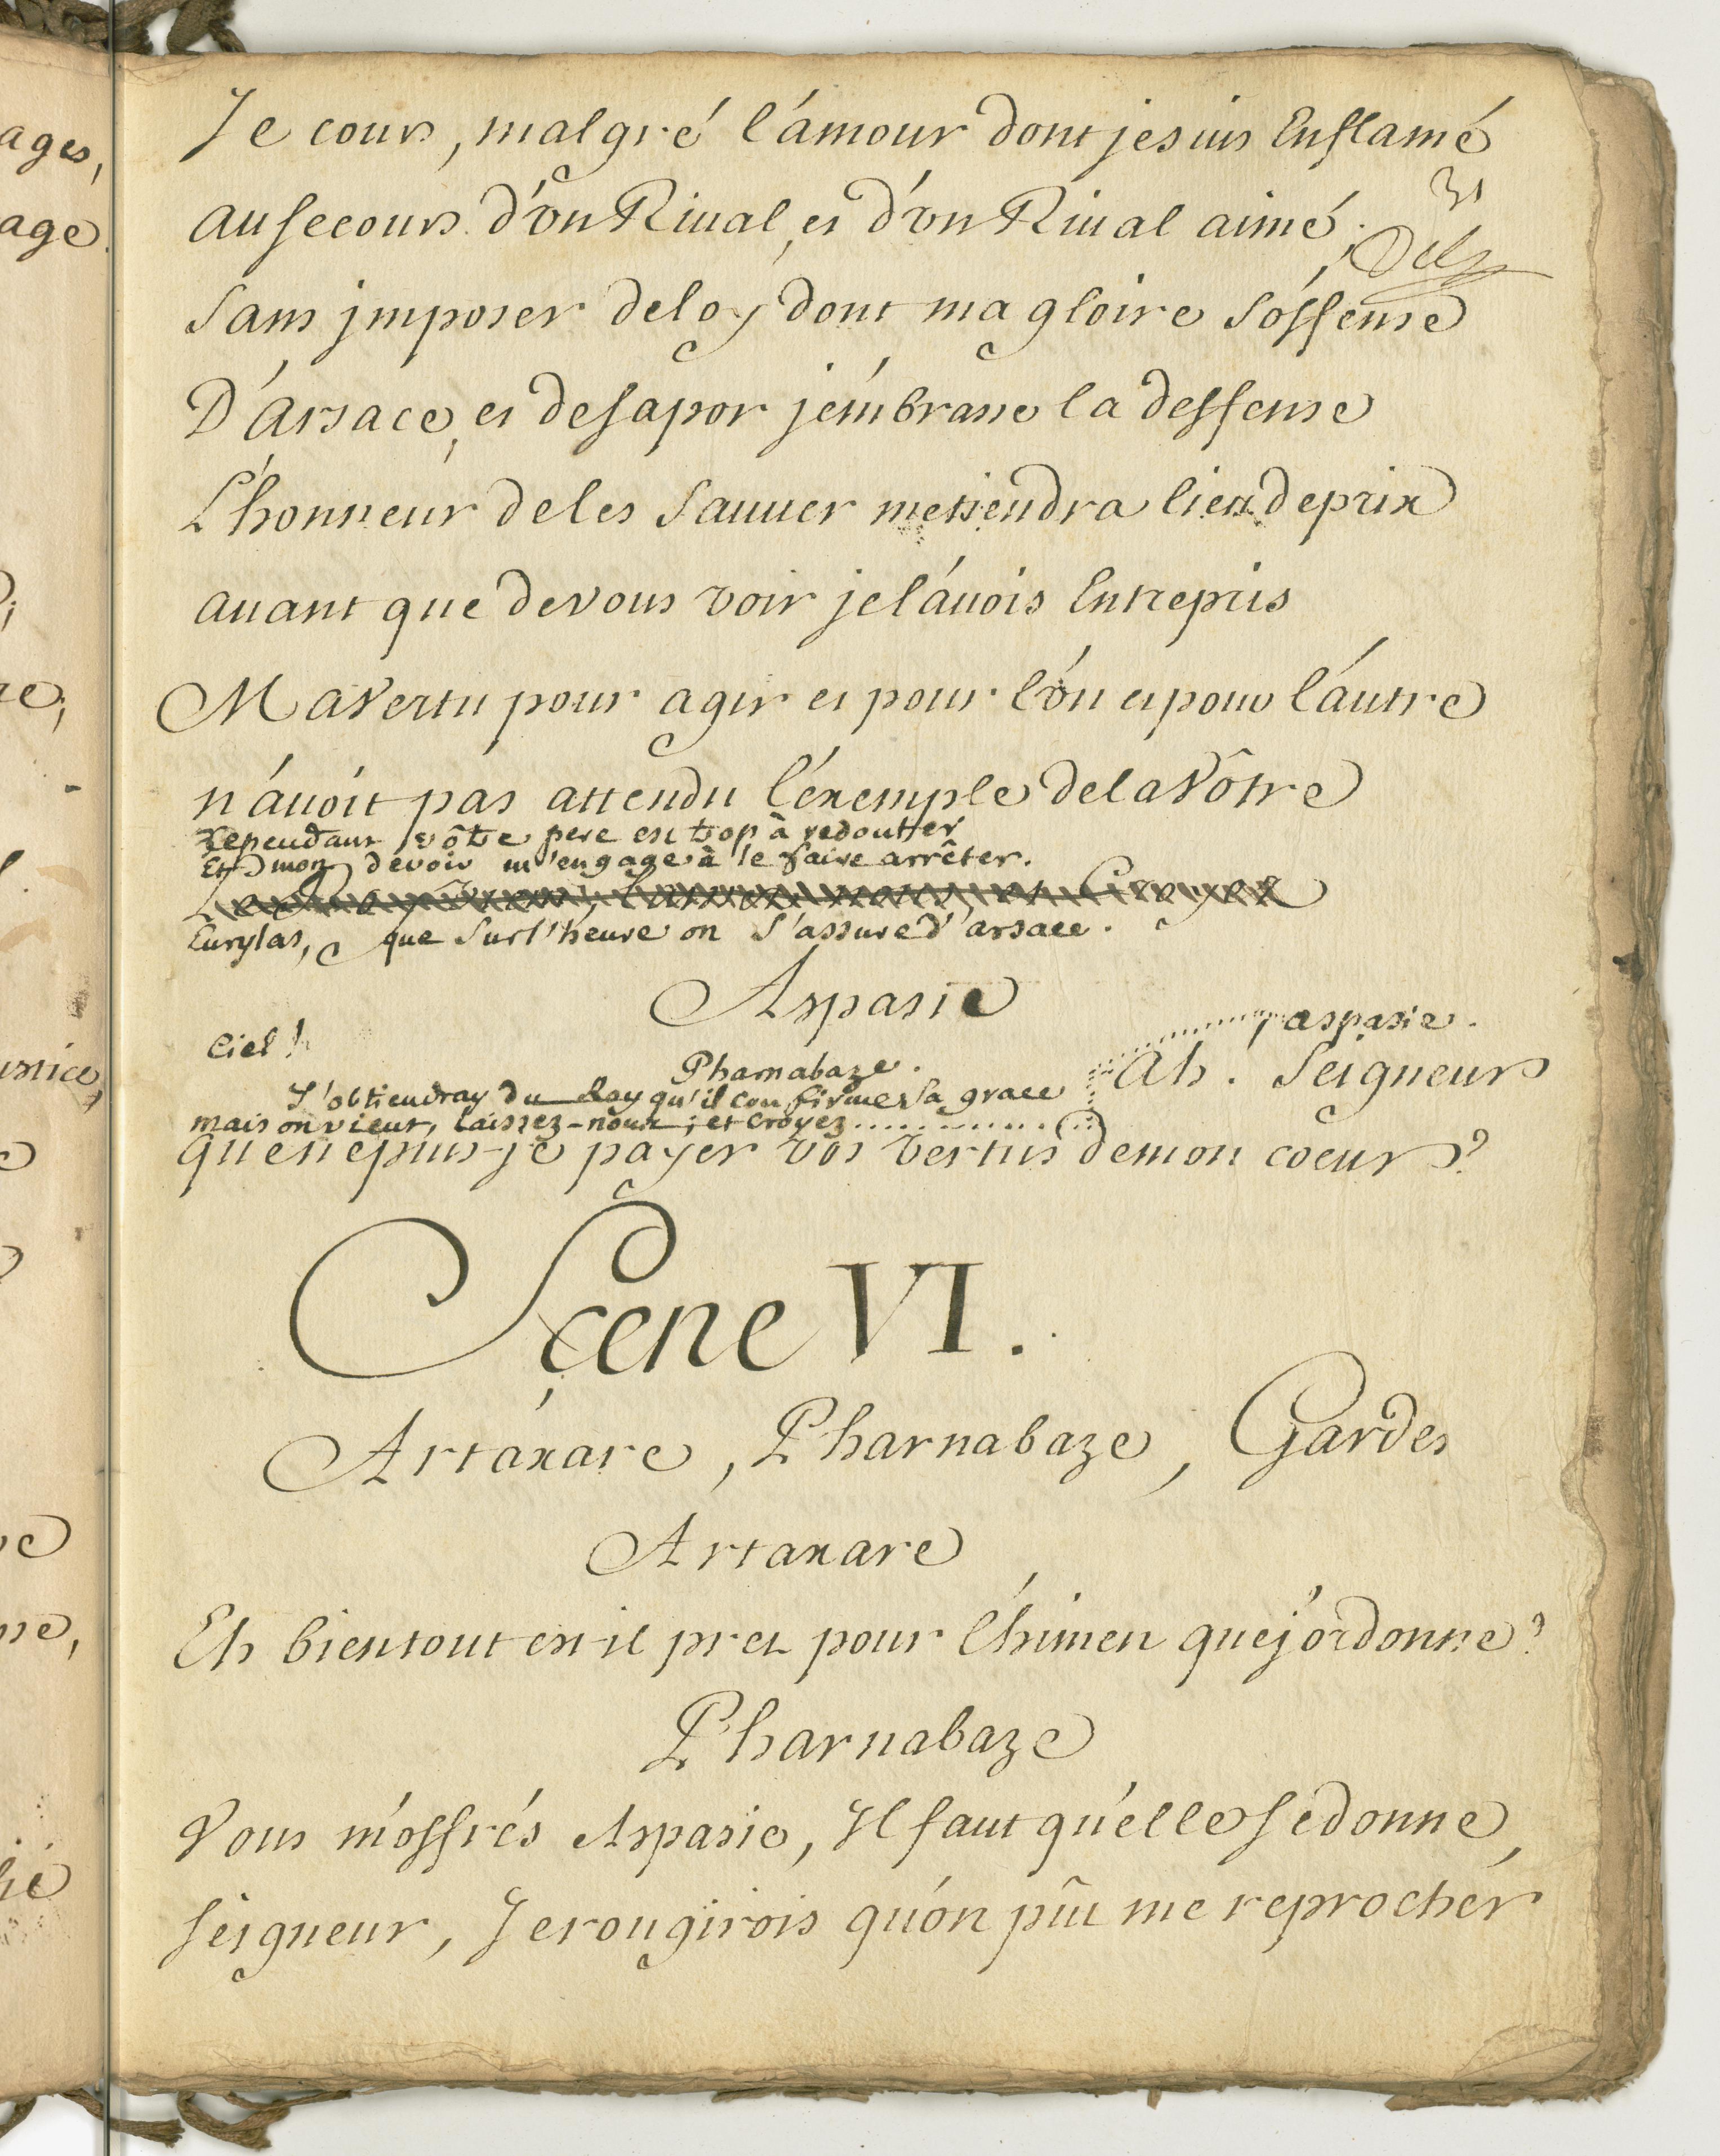 Je cours, malgré l'amour dont je suis Enflamé
31
au secours d'vn Riual, et d'vn Riual aimé;
Sans jmposer de loy dont ma gloire s'offense
D'Arsace, et de sapor j'embrasse la deffense
L'honneur de les Sauuer me tiendra lieu de prix
auant que de vous voir je l'auois Entrepris
Ma Vertu pour agir et pour l'vn et pour l'autre
n'auoit pas attendu l'exemple de la Vôtre
Cependant vôtre pere est trop à redoutter
Et mon devoir m'engage à le faire arrêter.
Eurylas, que Sur l'heure on s'assure d'arsace.
Aspasie
Ciel!
aspasie.
Pharnabaze.
Ah. Seigneur
J'obtiendray du Roy qu'il confirme sa grace
mais on vient, laissez-nous; et croyez............
que ne puis-je payer vos vertus de mon coeur?
Scene VI.
Artaxare, Pharnabaze, Gardes
Artaxare
Eh bien tout est-il pret pour l'himen que j'ordonne?
Pharnabaze
Vous m'offrés Aspasie, Il faut qu'elle se donne,
Seigneur, Je rougirois qu'on pût me reprocher